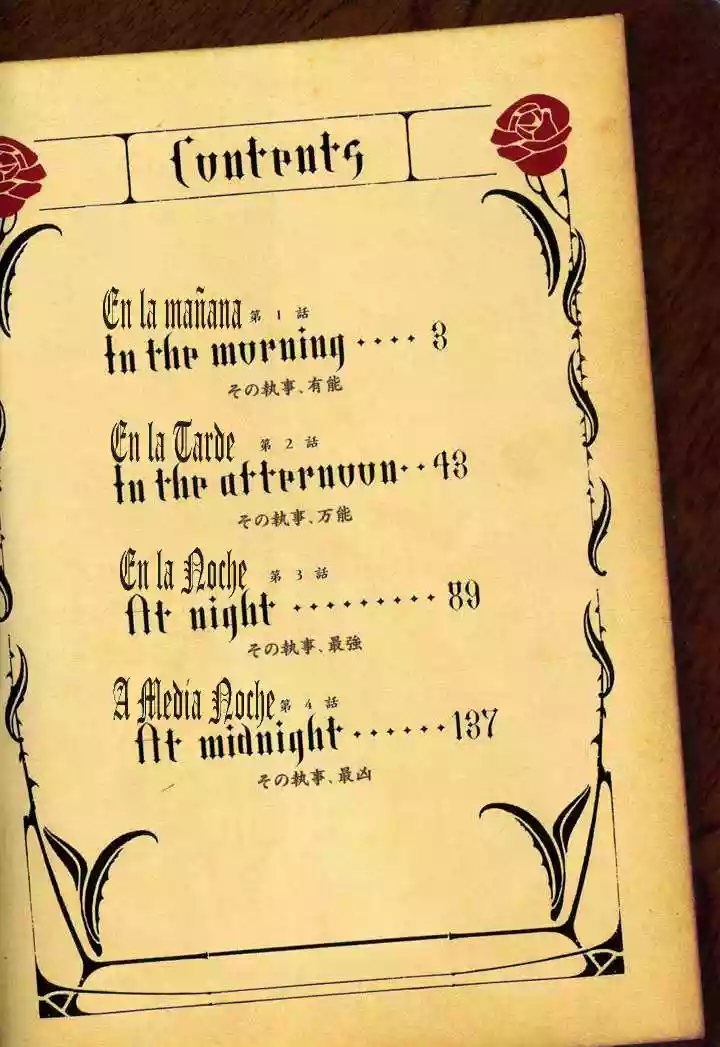 Contents
En la mañana 第1話
In the morning ‥‥ 3
その執事、有能
En la Tarde 第2話
In the afternoon ‥ 43
その執事、万能
En la Noche 第3話
At night ‥‥‥‥‥ 89
その執事、最強
A Media Noche 第4話
At midnight ‥‥‥ 137
その執事、最凶